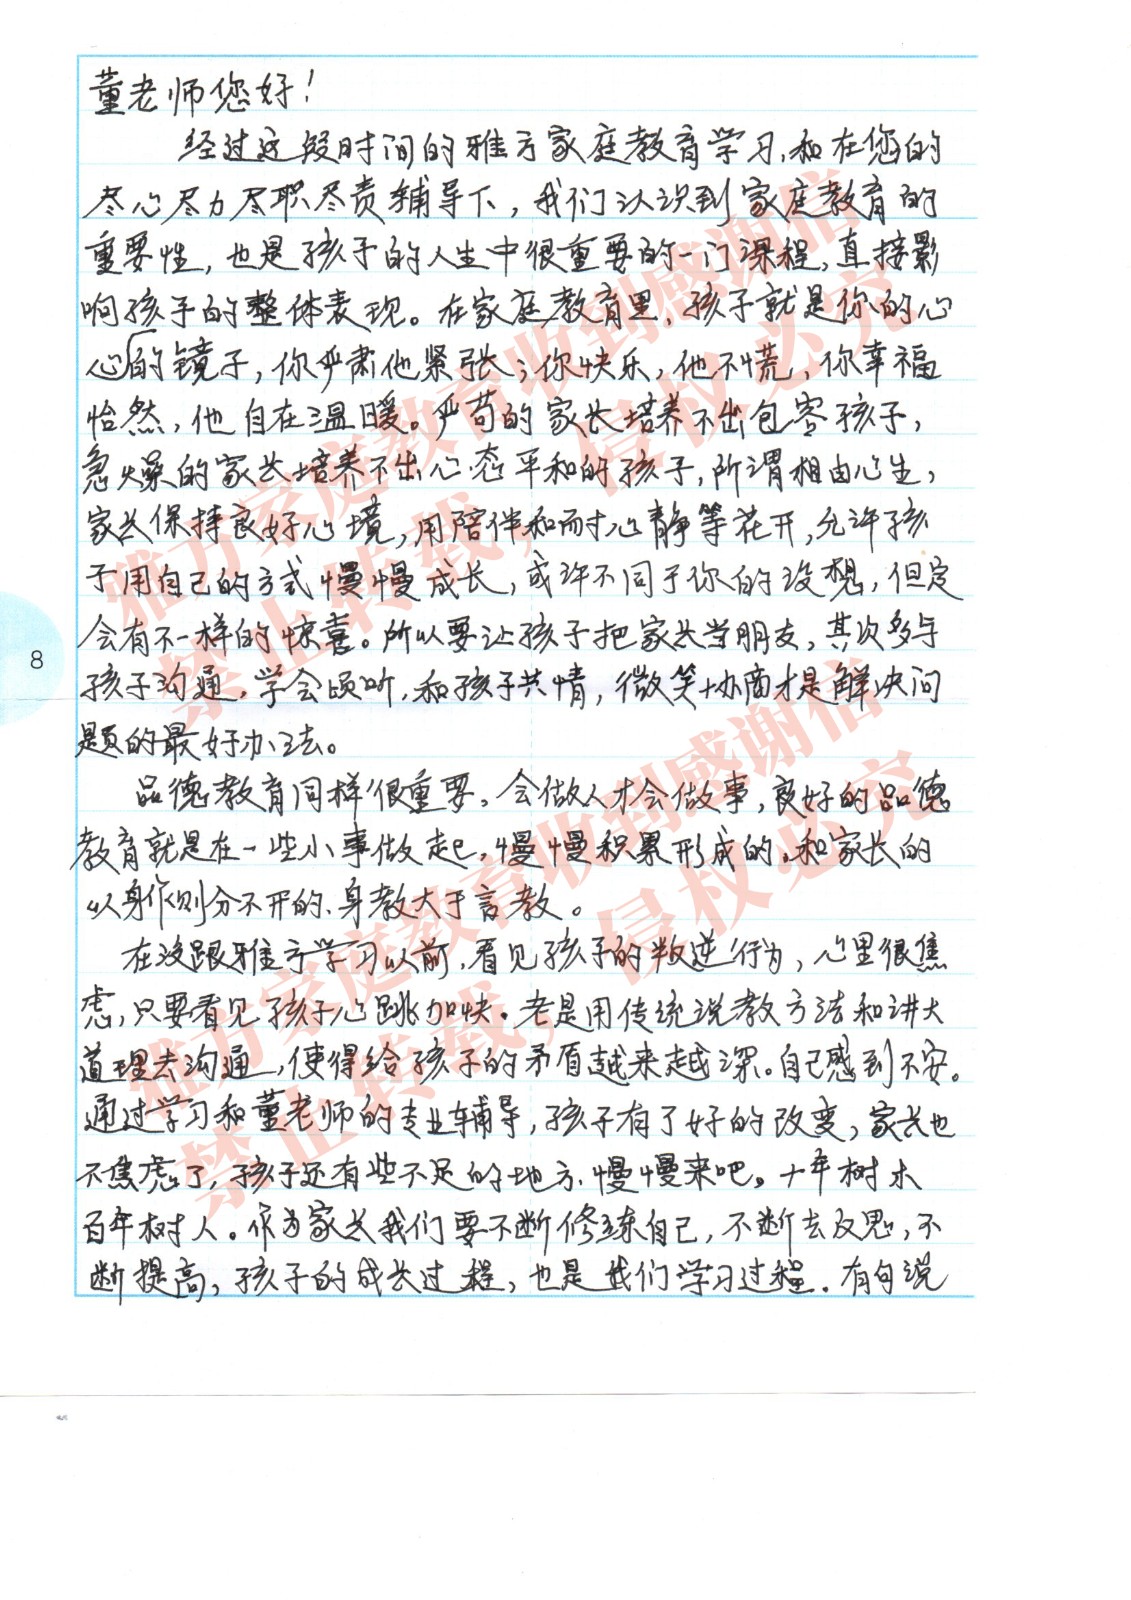 董老师您好！
经过这段时间的雅方家庭教育学习，和在您的
尽心尽力尽职尽责辅导下，我们认识到家庭教育的
重要性，也是孩子的人生中很重要的一门课程，直接影
响孩子的整体表现。在家庭教育里，孩子就是你的心
心的镜子，你严肃他紧张；你快乐，他不慌，你幸福
怡然，他自在温暖。严苛的家长培养不出包容孩子，
急燥的家长培养不出心态平和的孩子，所谓相由心生，
家长保持良好心境，用陪伴和耐心静等花开，允许孩
子用自己的方式慢慢成长，或许不同于你的设想，但定
会有不一样的惊喜。所以要让孩子把家长当朋友，其次多与
8
孩子沟通，学会倾听，和孩子共情，微笑+协商才是解决问
题的最好办法。
品德教育同样很重要，会做人才会做事，良好的品德
教育就是在一些小事做起，慢慢积累形成的，和家长的
以身作则分不开的、身教大于言教。
在没跟雅方学习以前，看见孩子的叛逆行为，心里很焦
虑，只要看见孩子心跳加快。老是用传统说教方法和讲大
道理去沟通，使得给孩子的矛盾越来越深。自己感到不安。
通过学习和董老师的专业辅导，孩子有了好的改变，家长也
不焦虑了，孩子还有些不足的地方、慢慢来吧。十年树木
百年树人。作为家长我们要不断修练自己，不断去反思，不
断提高，孩子的成长过程，也是我们学习过程。有句说
雅方家庭教育收到感谢信
禁止转载，侵权必究
雅方家庭教育收到感谢信
禁止转载，侵权必究